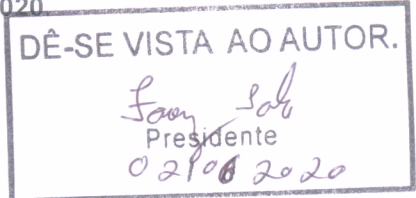 020
DÊ-SE VISTA AO AUTOR.
Presidente
02/06 2020